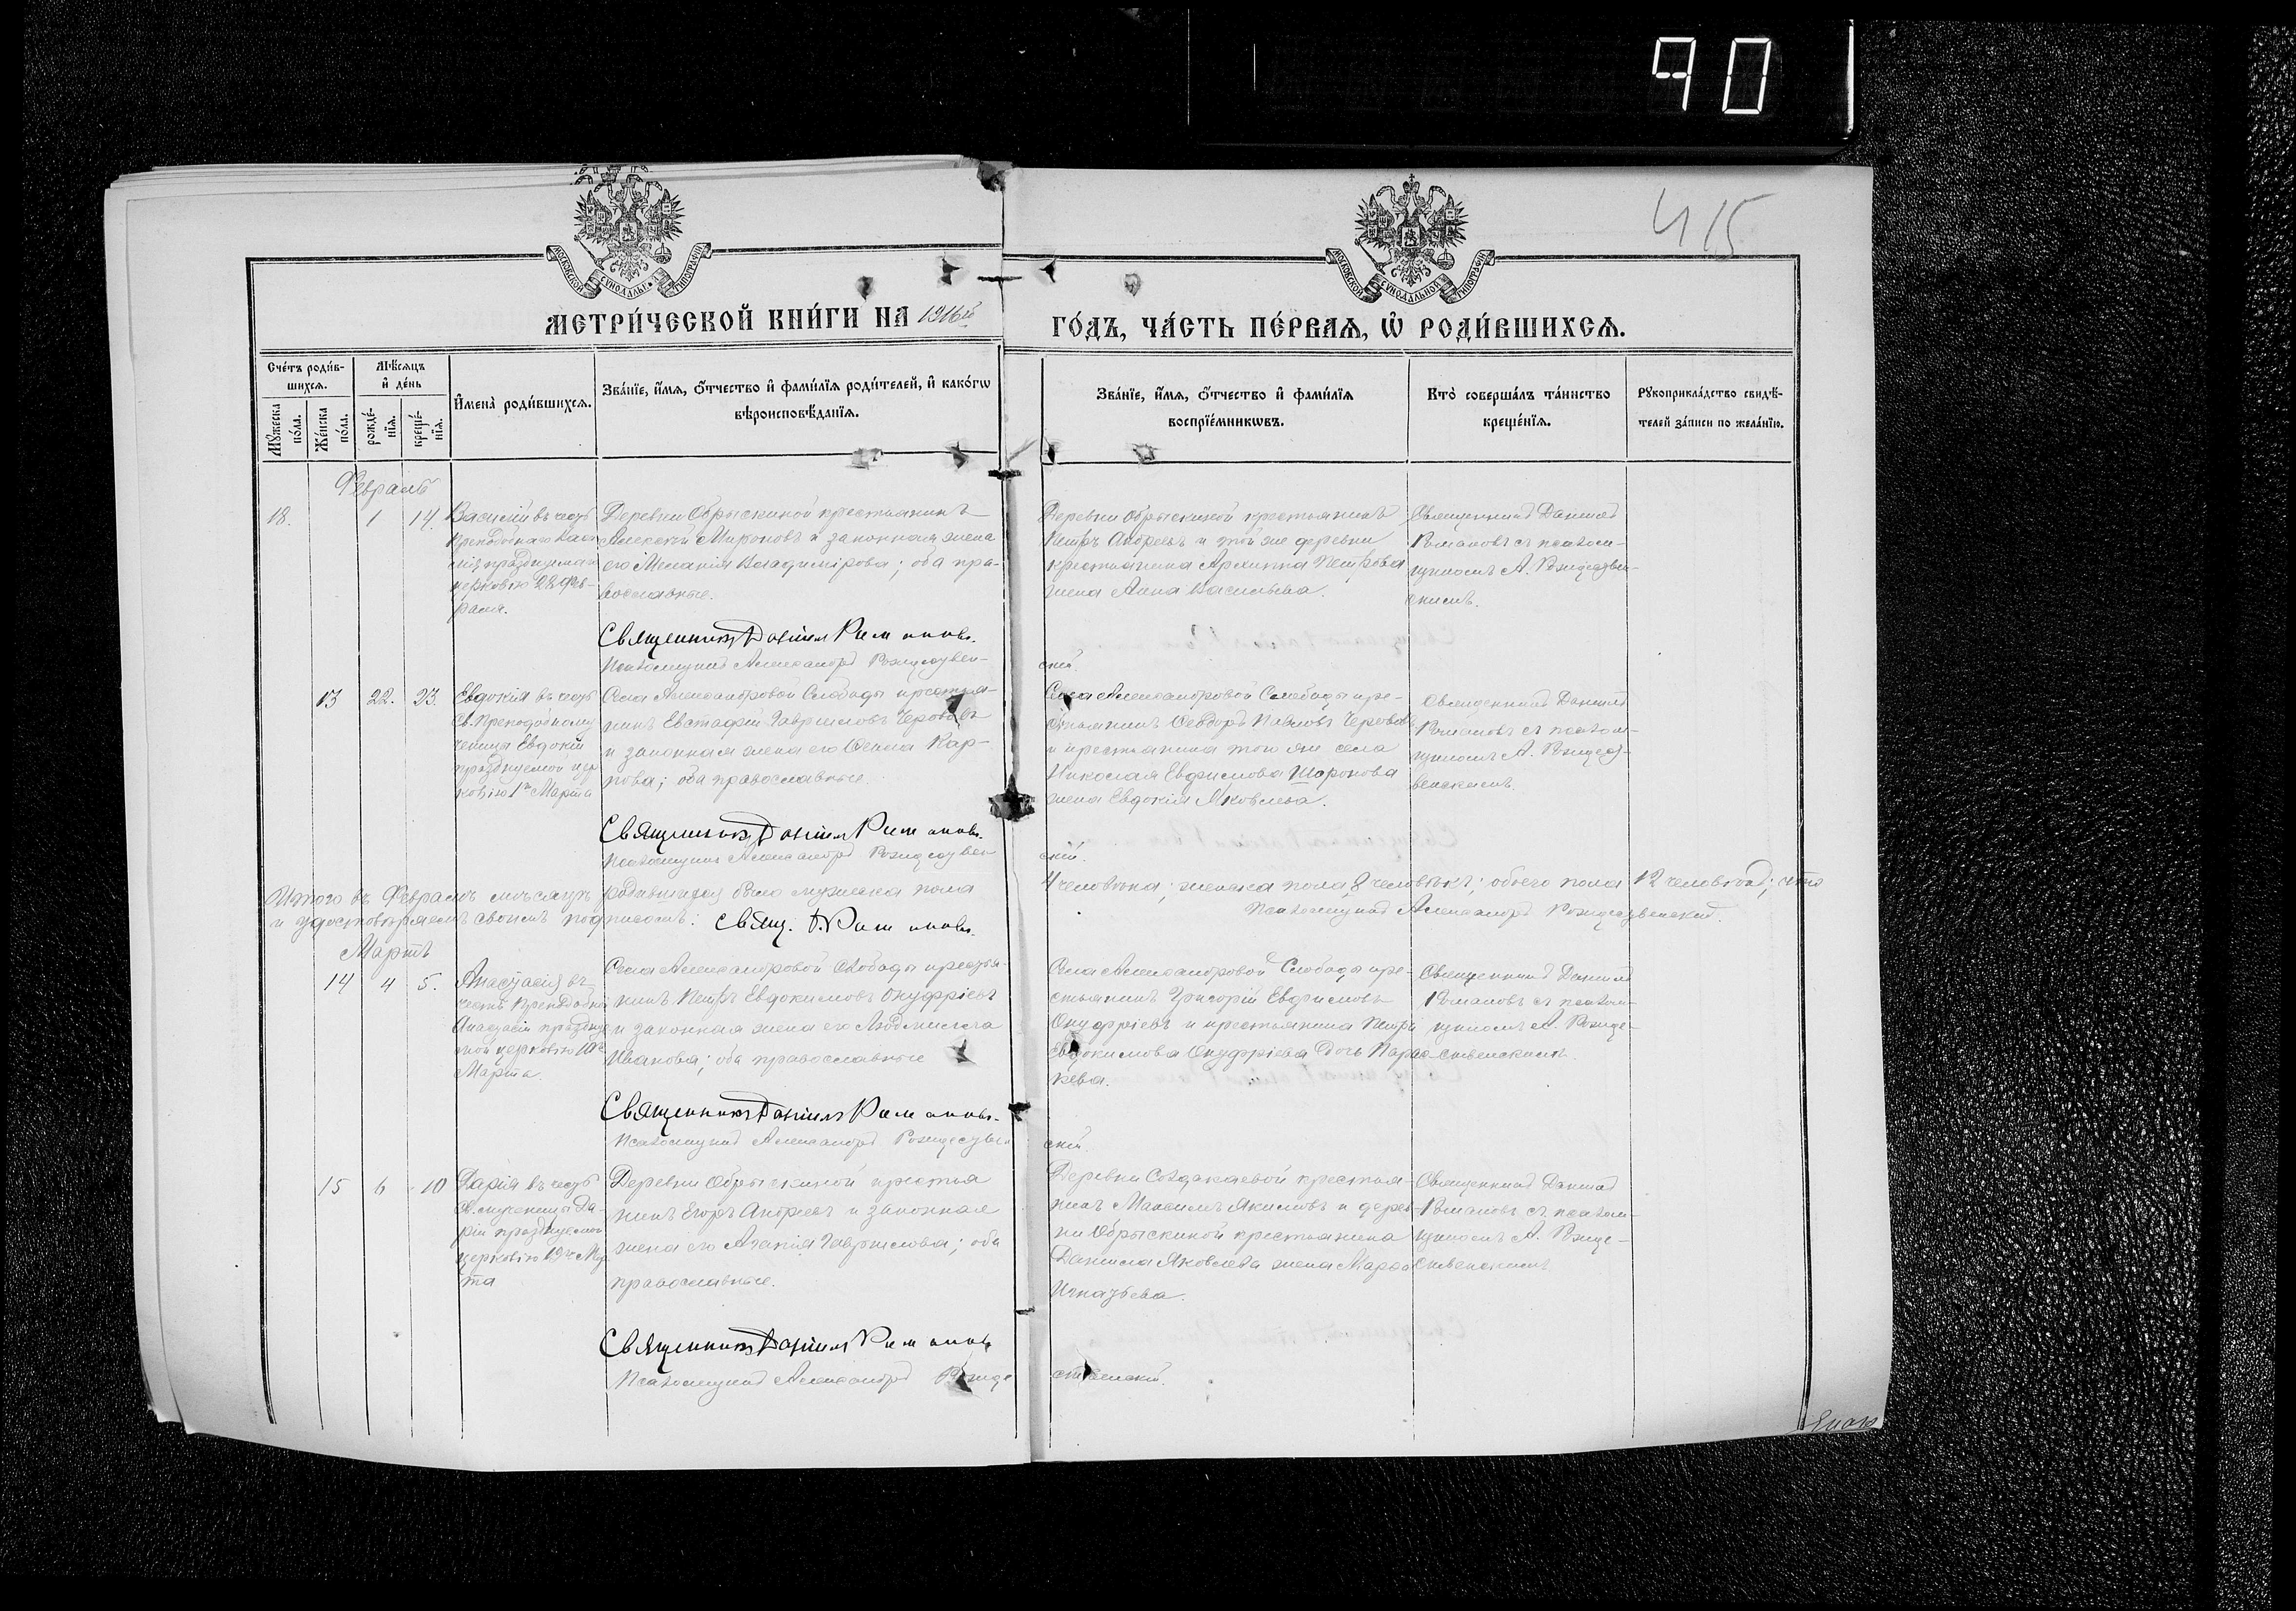 90
415
МОСКОВСКОЙ СѴНОДАЛЬНОЙ ТИПОГРАФІИ
МОСКОВСКОЙ СѴНОДАЛЬНОЙ ТИПОГРАФІИ
МЕТРИ́ЧЕСКОЙ КНИ́ГИ НА 1916й ГО́ДЪ, ЧА́СТЬ ПЕ́РВАЯ, Ѡ РОДИ́ВШИХСЯ.
Сче́тъ роди́в-
шихся.
Мꙋ́жеска по́ла.
Же́нска по́ла.
Мѣ́сяцъ
и҆ де́нь
рожде́-
нїя.
креще́-
нїя.
И҆мена̀ роди́вшихся.
Зва́нїе, и҆́мя, ѻ҆́тчество и҆ фами́лїя роди́телей, и҆ како́гѡ
вѣроисповѣ́данїя.
Зва́нїе, и҆́мя, ѻ҆́тчество и҆ фами́лїя
воспрїе́мникѡвъ.
Кто̀ соверша́лъ та́инство
креще́нїя.
Рꙋкоприкла́дство свидѣ́-
телей за́писи по жела́нїю.
Февраль
18.
1
14.
Василій въ честь
Преподобнаго Васи
лія празднуемаго
церковію 28 Фев-
раля.
Деревни Обрыскиной крестьянинъ
Алексѣй Мироновъ и законная жена
его Меланія Владимірова; оба пра-
вославные.
Священникъ Даніилъ Романовъ.
Псаломщикъ Александръ Рождествен-
Деревни Обрыскиной крестьянинъ
Петръ Андреевъ и той же деревни
крестьянина Архиппа Петрова
жена Анна Васильева.
скій.
Священникъ Даніилъ
Романовъ съ псалом-
щикомъ А. Рождествен-
скимъ.
13
22.
23.
Евдокія въ честь
Св. Преподобному
ченицы Евдокіи
празднуемой цер
ковію 1го Марта
Села Александровой Слободы крестья-
нинъ Евстафій Гавриловъ Червовъ
и законная жена его Ѳекла Кар-
пова; оба православные.
Священникъ Даніилъ Романовъ.
Псаломщикъ Александръ Рождествен
Села Александровой Слободы кре-
стьянинъ Ѳеодоръ Павловъ Червовъ
и крестьянина того же села
Николая Евфимова Шаронова
жена Евдокія Яковлева.
скій.
Священникъ Даніилъ
Романовъ съ псалом-
щикомъ А. Рождест-
венскимъ.
Итого въ Февралѣ мѣсяцѣ родившихся было мужеска пола 4 человѣка; женска пола 8 человѣкъ; обоего пола 12 человѣкъ; что
и удостовѣряемъ своимъ подписомъ: Свящ. Д. Романовъ. Псаломщикъ Александръ Рождественскій.
Мартъ
14
4
5.
Анастасія въ
честь Преподобной
Анастасіи празднуе
мой церковію 10го
Марта.
Села Александровой Слободы крестья-
нинъ Петръ Евдокимовъ Онуфріевъ
и законная жена его Людмилла
Иванова; оба православные
Священникъ Даніилъ Романовъ.
Псаломщикъ Александръ Рождествен
Села Александровой Слободы кре-
стьянинъ Григорій Евфимовъ
Онуфріевъ и крестьянина Петра
Евдокимова Онуфріева дочь Парас-
кева.
скій.
Священникъ Даніилъ
Романовъ съ псалом-
щикомъ А. Рожде-
ственскимъ.
15
6
10
Дарія въ честь
Св. мученицы Да-
ріи празднуемой
церковію 19го Мар
та
Деревни Обрыскиной крестья
нинъ Егоръ Андреевъ и законная
жена его Агапія Гаврилова; оба
православные.
Священникъ Даніилъ Романовъ
Псаломщикъ Александръ Рожде
Деревни крестья-
нинъ Максимъ Якимовъ и дерев-
ни Обрыскиной крестьянина
Данила Яковлева жена Марѳа
Игнатьева.
ственскій.
Священникъ Даніилъ
Романовъ съ псалом-
щикомъ А. Рожде-
ственскимъ